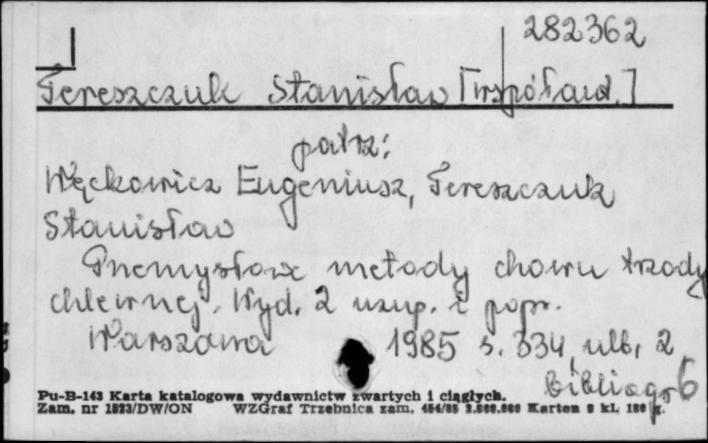 282362
Tereszczuk Stanisław [współaut.]
patrz:
Węckowicz Eugeniusz, Tereszczuk
Stanisław
Przemysłowe metody chowu trzody
chlewnej. Wyd. 2 uzup. i popr.
Warszawa 1985 s. 334, ulb. 2
bibliogr 6
Pu-B-143 Karta katalogowa wydawnictw zwartych i ciągłych.
Zam. nr 1523/DW/ON WZGraf Trzebnica zam. 454/85 2.500.000 Karton kl.